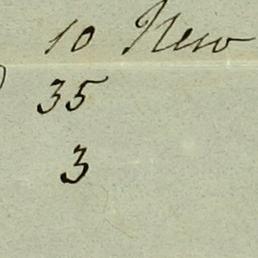 10 New
35
3